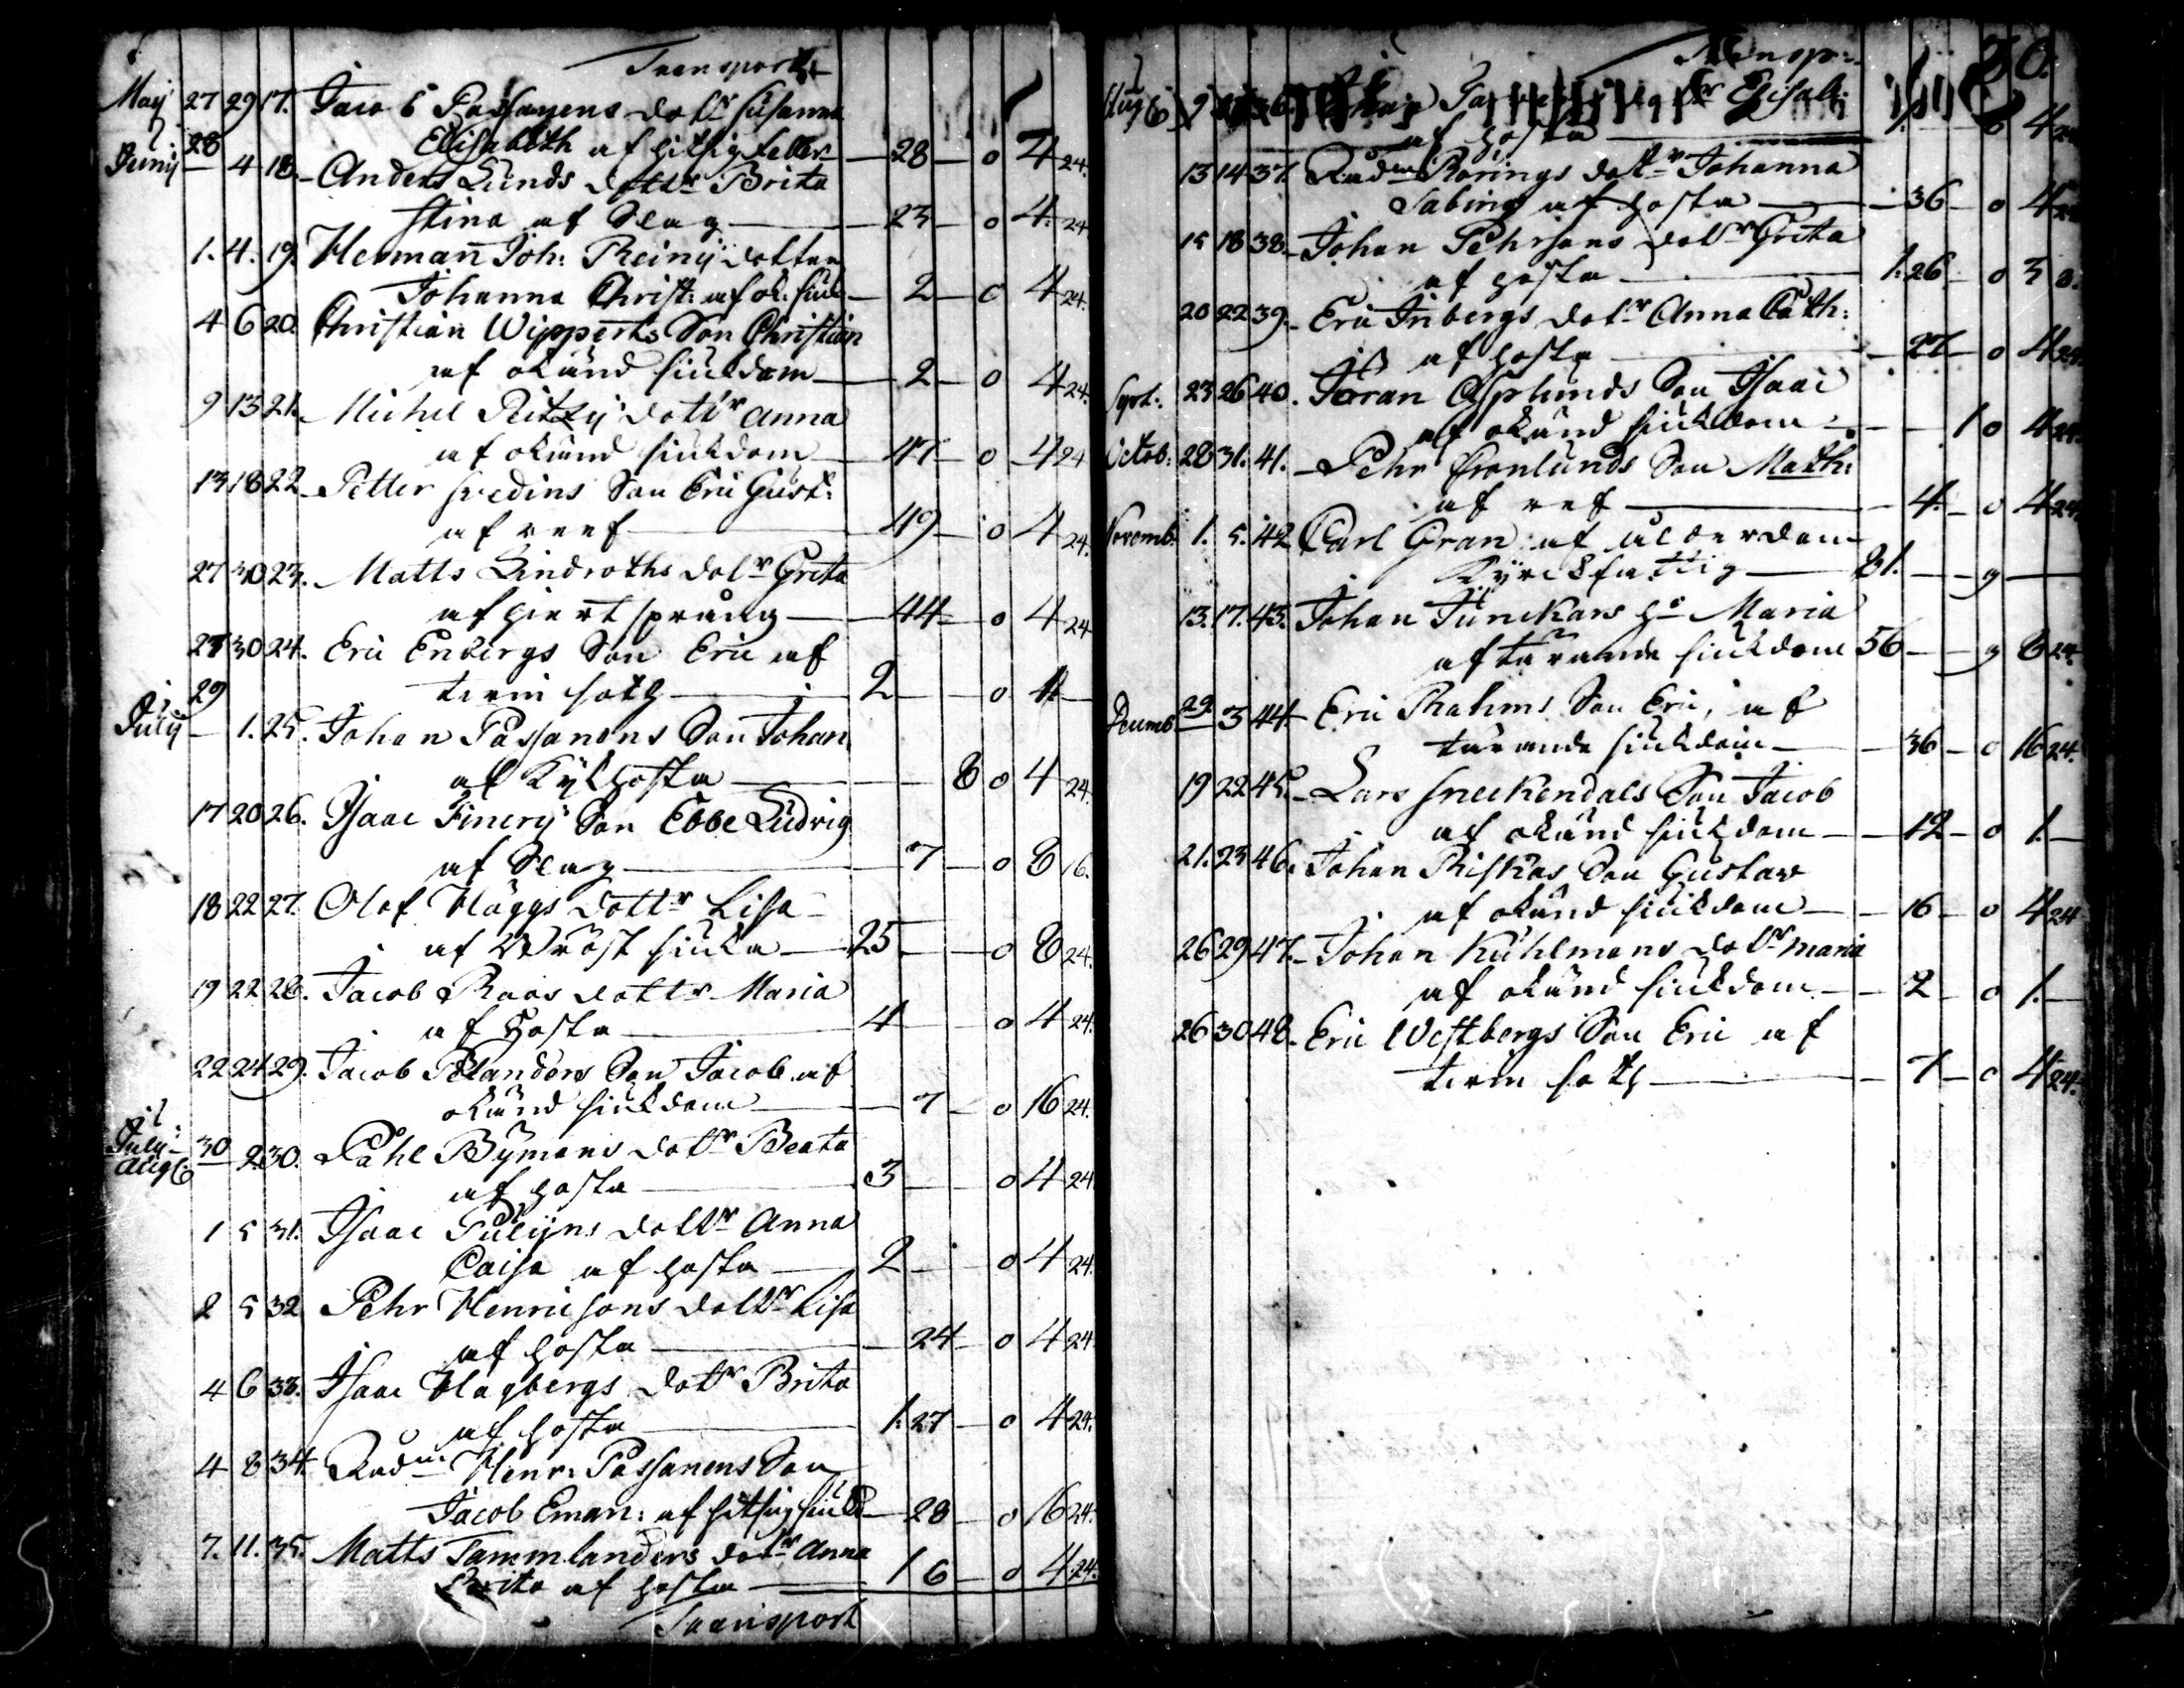 Transport
Maij 27 29 17. Jacob Passanens dottr Susanna
Elisabeth af hitsig feber 28 o 4 24.
Junij 28 4 18. Anders Lunds dottr Brita
Stina af Slag 23 o 4 24
1. 4. 19. Herman Joh: Reinij dotter
Johanna Christ: af ok: siuk 2 o 4 24.
4 6 20. Christian Wipperts Son Christian
af okänd siukdom 2 o 4 24.
9 13 21. Michel Ritzij dottr Anna
af okänd siukdom 47 o 4 24
13 18 22. Petter Hedins Son Eric Gust:
af reef 49 o 4 24.
27 30 23. Matts Lindroths dotr Greta
af hiertsprång 44 o 4 24
27 30 24. Eric Enbergs Son Eric af
tvin soth 2 o 1
July 29 1. 25. Johan Passanens Son Johan
af Kikhosta 8 o 4 24.
17 20 26. Isaac Finerij Son Ebbe Ludvig
af Slag 7 o 8 16.
18 22 27. Olof Häggs dottr Lisa
af bröst siuka 25 o 8 24.
19 22 28. Jacob Roos dottr Maria
af Hosta 4 o 4 24.
22 24 29. Jacob Polanders Son Jacob af
okänd siukdom 7 o 16 24.
July Aug: 30 2 30. Påhl Bÿmans dotr Beata
af hosta 3 o 4 24
1 5 31. Isaac Julijns dottr Anna
Caisa af hosta 2 o 4 24.
2 5 32 Pehr Henricsons dottr Lisa
af hosta 24 o 4 24.
4 6 33. Isaac Hagbergs dottr Brita
af hosta 1. 27 o 4 24.
4 8 34. Rådm Henr: Passanens Son
Jacob Eman: af hitsig siuk 28 o 16 24.
7. 11. 35. Matts Tammlanders dotr Anna
Brita af hosta 1 6 o 4 24.
Transport
Transp: 30.
Aug 9 36. dottr Elisab:
af hosta 1 o 4
13 14 37. Rådm Rörings dottr Johanna
Sabina af hosta 36 o 4
15 18 38. Johan Pehrsons dottr Greta
af hosta 1. 26 o 3 8.
20 22 39. Eric Inbergs dotr Anna Cath:
af hosta 27 o 4 24.
Sept: 23 26 40. Jöran Asplunds Son Isaac
af okänd siukdom 1 o 4 24.
Octob: 28 31. 41. Pehr Cronlunds Son Math:
af ref 4. o 4 24.
Novemb: 1. 5. 42 Carl Gran af ålderdom
Kyrckfattig 81. g
13. 17. 43. Johan Junckars ho Maria
af tärande siukdom 56 g 8 24.
Decemb 29 3 44 Eric Rahms Son Eric, af
tärande siukdom 36 o 16 24.
19 22 45. Lars Sneckendals Son Jacob
af okänd siukdom 12 o 1.
21. 23 46. Johan Riskas Son Gustav
af okänd siukdom 16 o 4 24
26 29 47. Johan Kühlmans dotr Maria
af okänd siukdom 2 o 1.
26 30 48. Eric Westbergs Son Eric af
tvin soth 7 o 4 24.